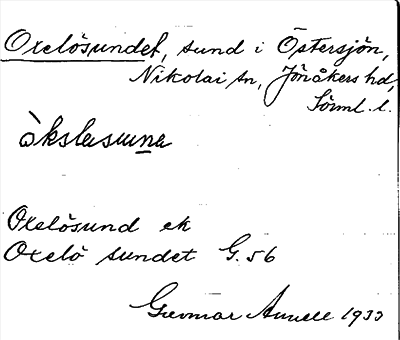 Oxelösundet, sund i Östersjön,
Nikolai sn, Jönåkers hd,
Söml. l.
Oxelösund ek
Oxelö sundet G. 56
Gunnar Annell 1933